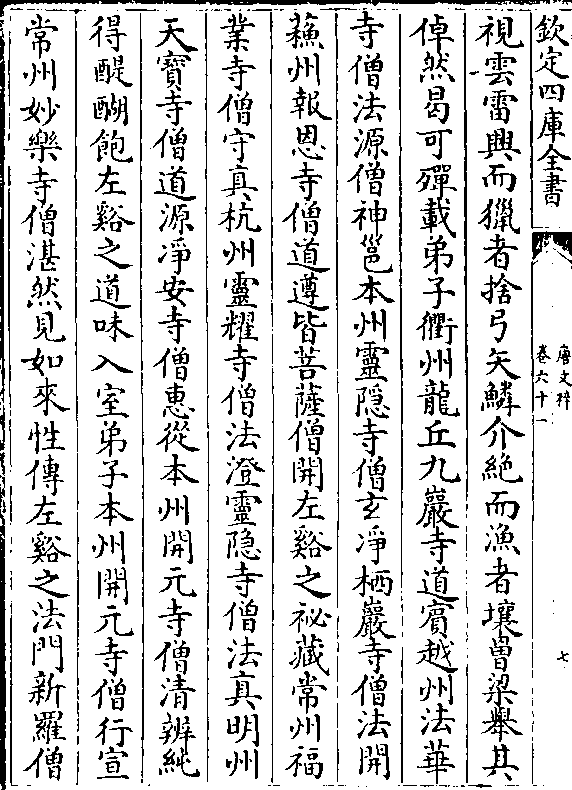 欽定四庫全書
唐文粹
卷六十一
七
視雲雷興而獵者捨弓矢鱗介絶而漁者壤罾梁舉其
倬然曷可殫載弟子衢州龍丘九巖寺道賓越州法華
寺僧法源僧神邕本州靈隠寺僧玄凈栖巖寺僧法開
蘓州報恩寺僧道遵皆菩薩僧開左谿之祕藏常州福
業寺僧守真杭州靈耀寺僧法澄靈隐寺僧法真明州
天寶寺僧道源凈安寺僧惠從本州開元寺僧清辨純
得醍醐飽左谿之道味入室弟子本州開元寺僧行宣
常州妙樂寺僧湛然見如來性傳左谿之法門新羅僧